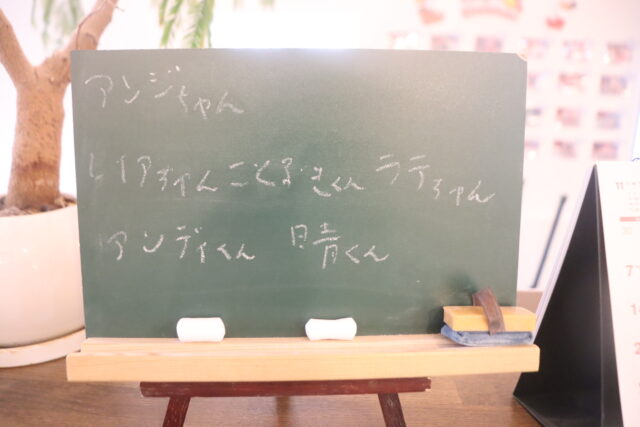 アンジちゃん
レイアちゃん ことまさくん ラテちゃん
アンディくん 晴くん
11
7
14